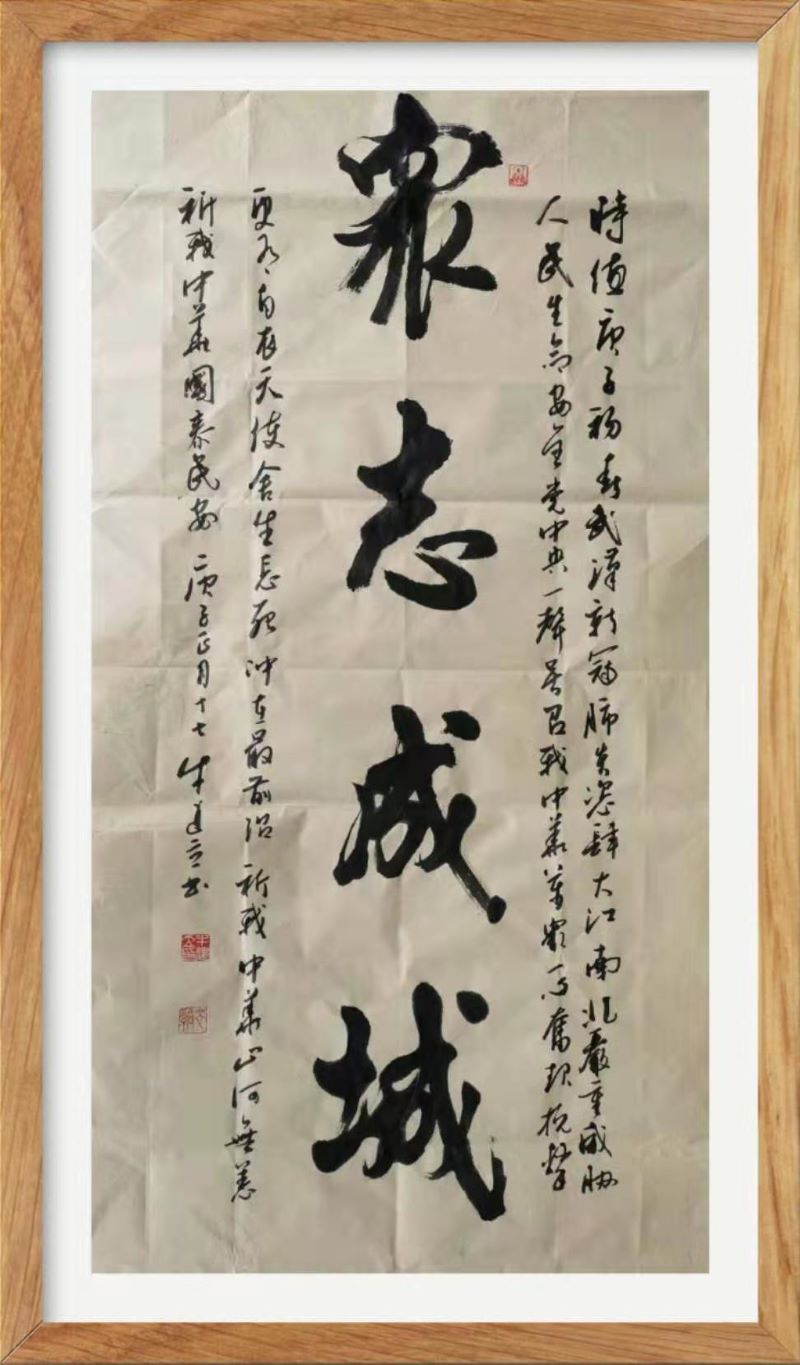 時值庚子初春武漢新冠肺炎恣肆大江南北嚴重威脅
人民生命安全党中央一聲号召我中華萬衆一心奮起抗擊
衆志成城
更有白衣天使舍生忘死冲在最前沿祈我中華山河無恙
祈我中華國泰民安 庚子正月十七 道立书